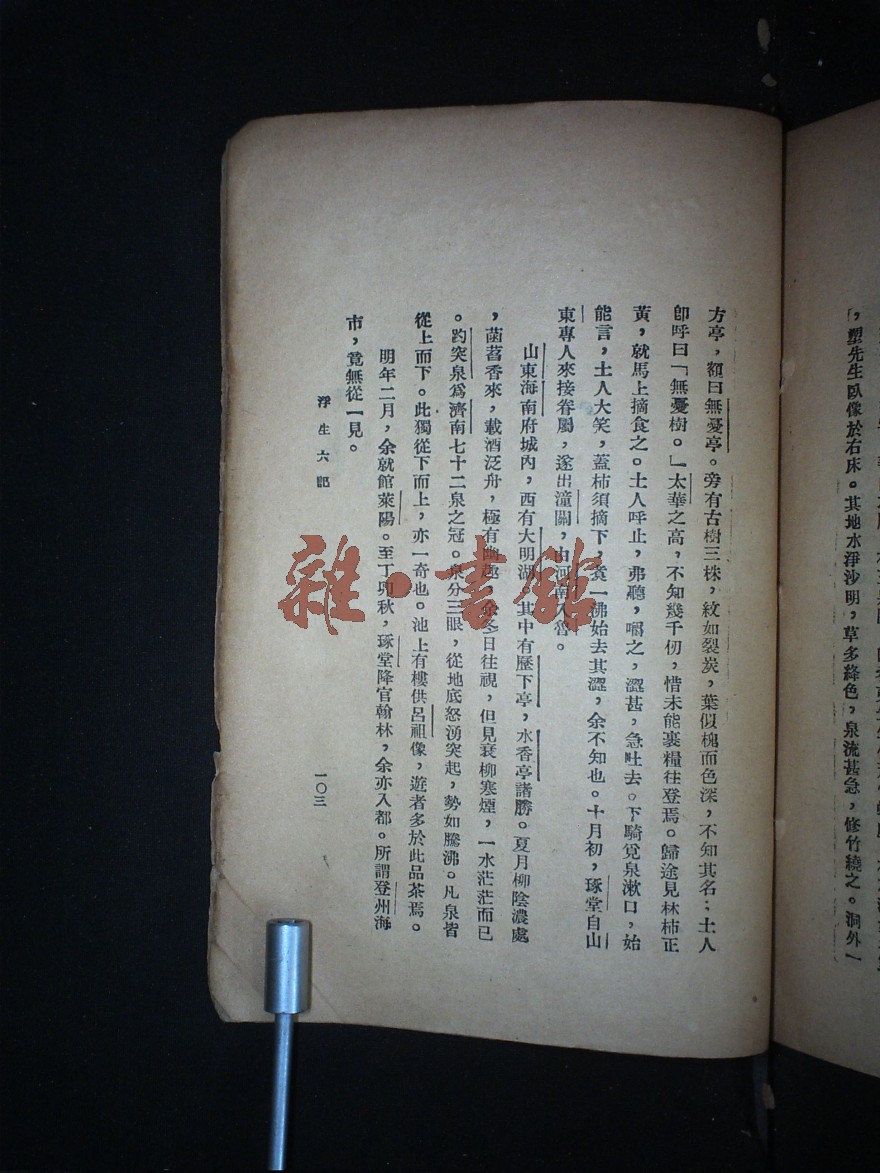 ，塑先生臥像於右床。其地水淨沙明，草多絳色，泉流甚急，修竹繞之。洞外一
方亭，額曰無憂亭。旁有古樹三株，紋如裂炭，葉似槐而色深，不知其名；土人
卽呼曰「無憂樹。」太華之高，不知幾千仞，惜未能裹糧往登焉。歸途見林柿正
黃，就馬上摘食之。土人呼止，弗聽，嚼之，澀甚，急吐去。下騎覓泉漱口，始
能言，土人大笑，蓋柿須摘下，煑一沸始去其澀，余不知也。十月初，琢堂自山
東專人來接眷屬，遂出潼關，由河南入魯。
山東海南府城內，西有大明湖，其中有歷下亭，水香亭諸勝。夏月柳陰濃處
，菡萏香來，載酒泛舟，極有幽趣。余冬日往視，但見衰柳寒煙，一水茫茫而已
。趵突泉爲濟南七十二泉之冠。泉分三眼，從地底怒湧突起，勢如騰沸。凡泉皆
從上而下。此獨從下而上，亦一奇也。池上有樓供呂祖像，遊者多於此品茶焉。
明年二月，余就館萊陽。至丁卯秋，琢堂降官翰林，余亦入都。所謂登州海
市，竟無從一見。
浮生六記
一〇三
雜·書館